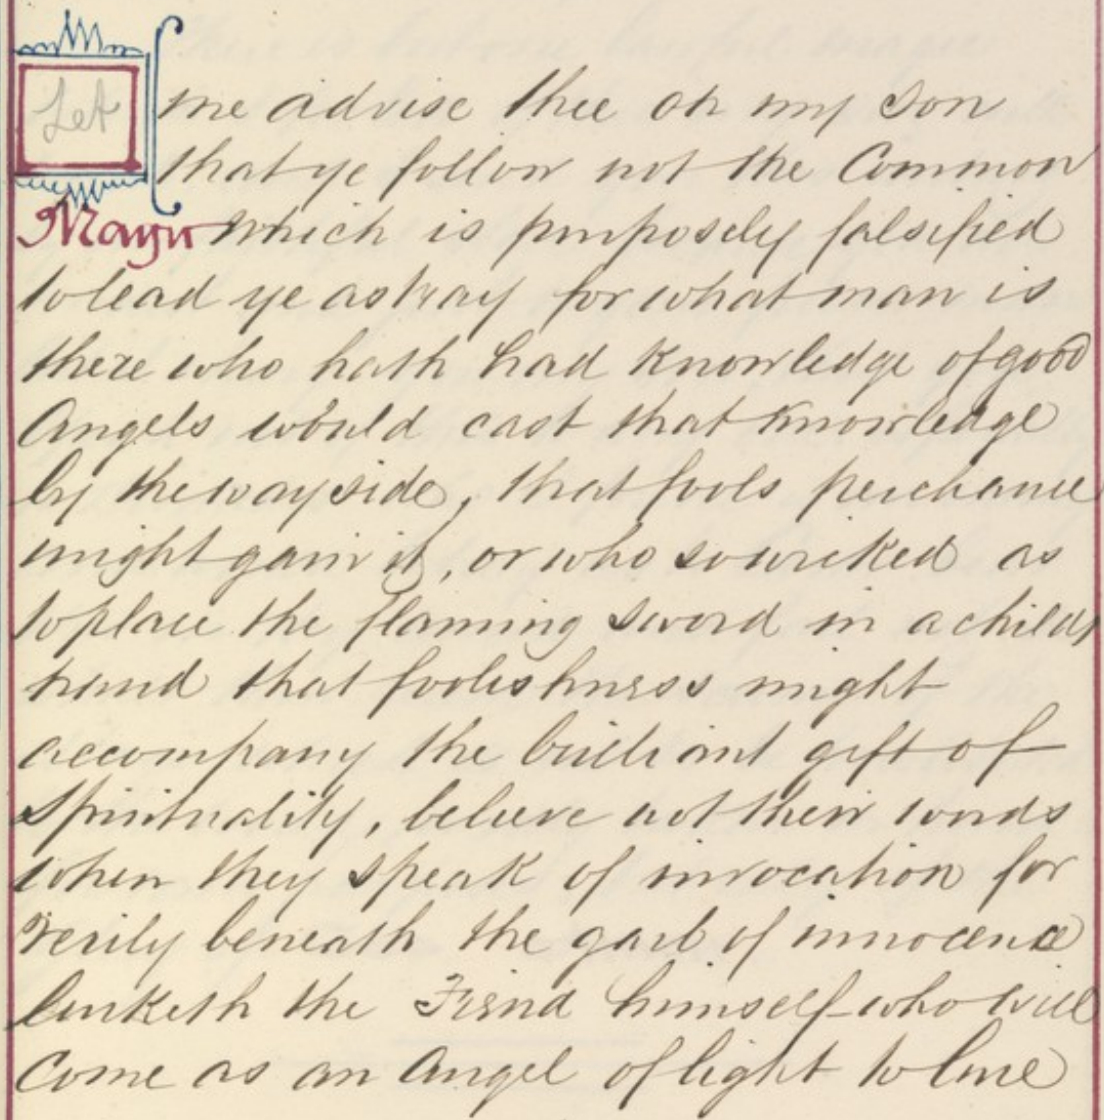 Let me advise thee oh my son
that ye follow not the Common
Magii which is purposely falsified
to lead ye astray for what man is
there who hath had knowledge of good
Angels would cast that knowledge
by the wayside, that fools perchance
might gain it, or who so wicked as
to place the flaming sword in a childs
hand that foolishness might
accompany the brilliant gift of
Spirituality, believe not their words
when they speak of invocation for
verily beneath the garb of innocence
lurketh the Fiend himself who will
come as an Angel of light to lure